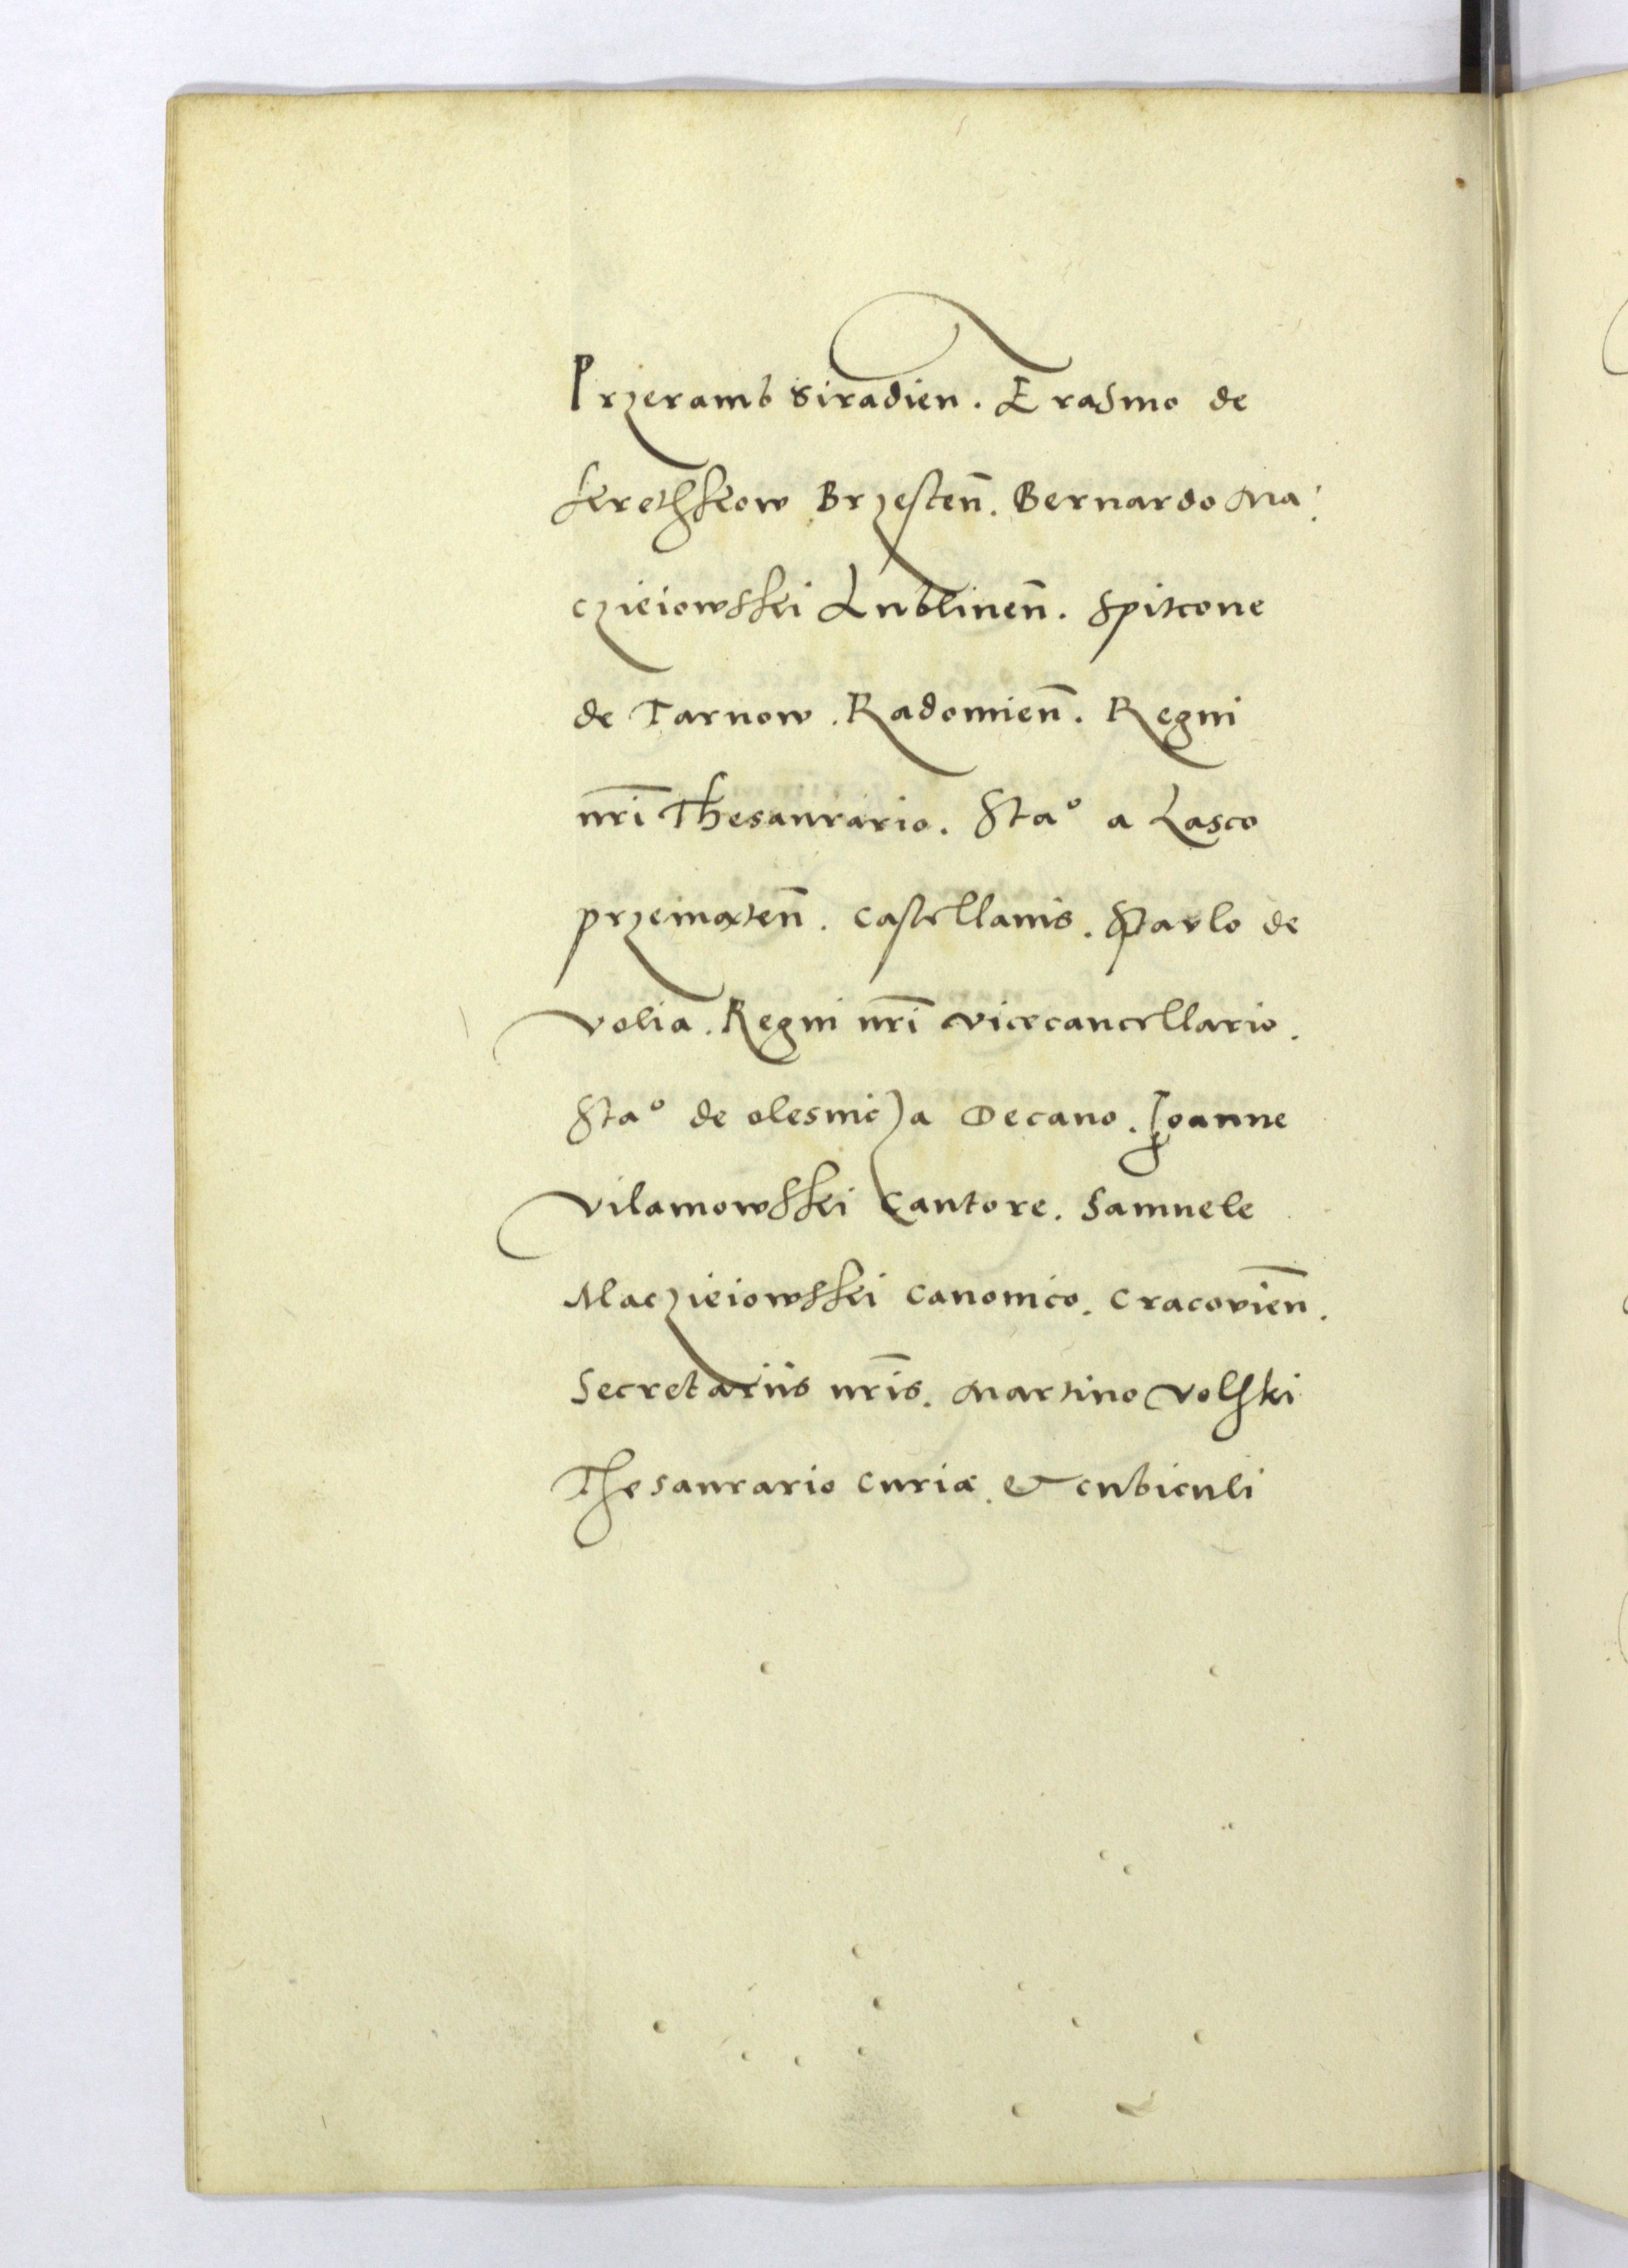 Przeramb Siradien. Erasmo de
krethkow Brzesten̄. Bernardo Ma:
czieiowski Lublinen̄. Spitcone
de Tarnow. Radomien̄. Regni
nr̄i Thesaurario. Staº a Lasco
przemѫten̄. castellanis. Paulo de
volia. Regni nr̄i vicecancellario.
Staº de olesnicza Decano. Joanne
vilamowski Cantore. Samuele
Maczieiowski canonico. Cracovien̄.
Secretariis nr̄is. Martino volski
Thesaurario curiæ. & cubiculi